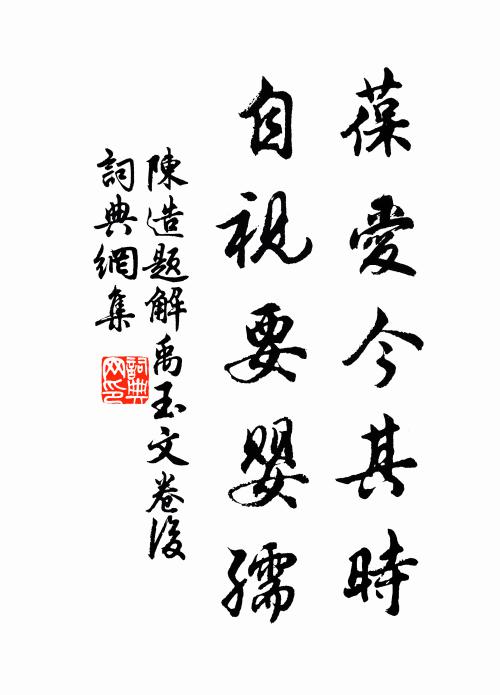 葆愛今其時
自視要嬰孺
陳造題解禹玉文卷後
詞典網集
詞典
网印